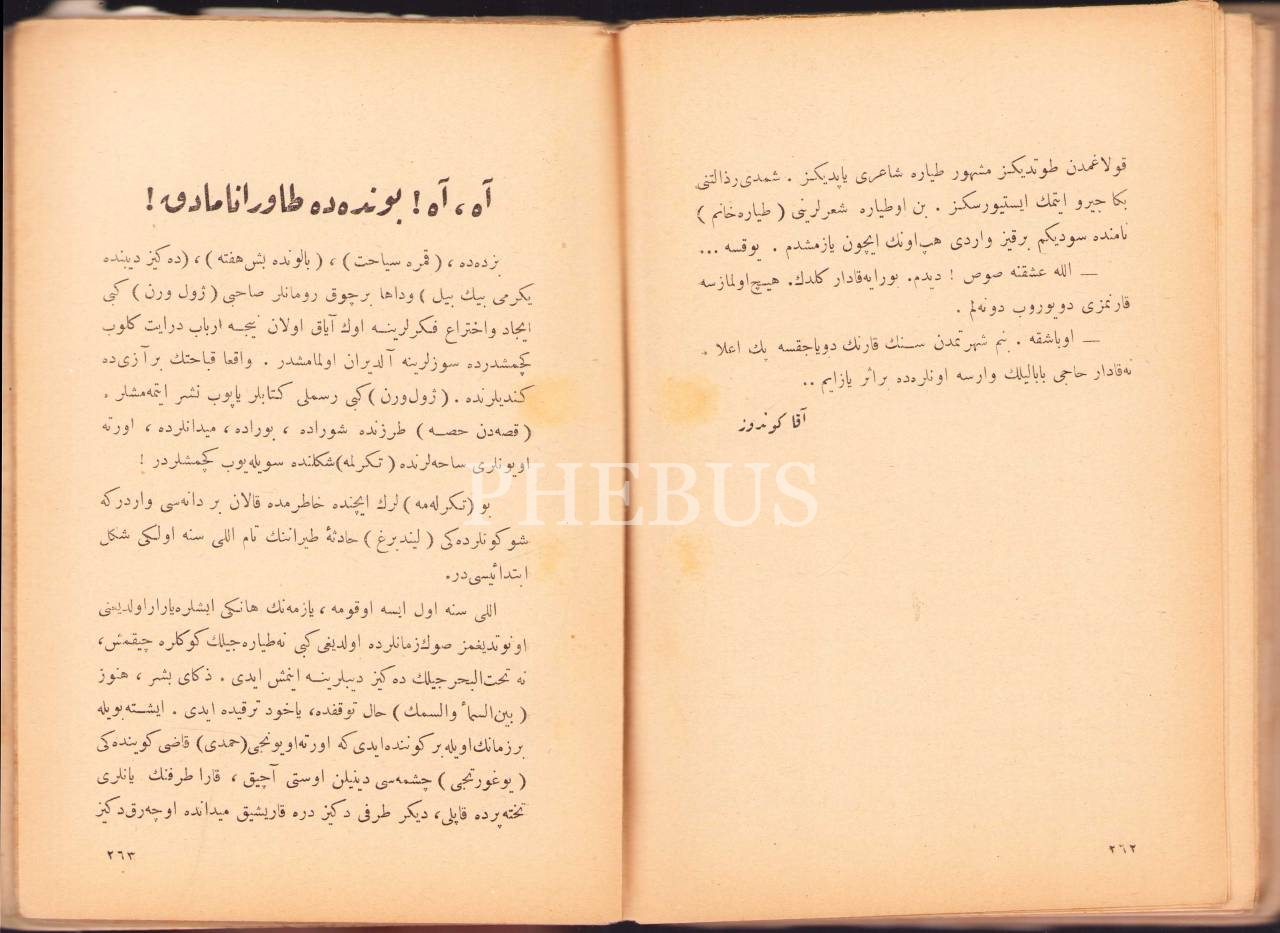 قولاغمدن طوتدیكز مشهور طیاره شاعری یاپدیكز . شمدی رذالتنی
بكا جیرو ایتمك ایستیورسكز . بن او طیاره شعرلرینی ( طیاره خانم )
نامنده سودیكم بر قیز واردی هپ اونك ایچون یازمشدم . یوقسه ...
— الله عشقنه صوص ! دیدم. بورایه قادار كلدك. هیچ اولمازسه
قارنمزی دویوروب دونه لم .
— او باشقه . بنم شهر تمدن سنك قارنك دویاجقسه پك اعلا .
نه قادار حاجی بابالیلك وارسه اونلره ده بر اثر یازایم ..
آقا كوندوز
٢٦٢
آه ، آه ! بونده ده طاورانامادق !
بزده ده ، ( قمره سیاحت ) ، ( بالونده بش هفته ) ، ( ده كیز دیبنده
یكرمی بیك بیل ) و داها بر چوق رومانلر صاحبی ( ژول ورن ) كبی
ایجاد و اختراع فكرلرینه اوك آیاق اولان نیجه ارباب درایت كلوب
كچمشدرده سوزلرینه آلدیران اولمامشدر . واقعا قباحتك بر آزی ده
كندیلرنده . ( ژول ورن ) كبی رسملی كتابلر یاپوب نشر ایتمه مشلر .
( قصه دن حصه ) طرزنده شوراده ، بوراده ، میدانلرده ، اورته
اویونلری ساحه لرنده ( تكرلمه ) شكلنده سویله یوب كچمشلردر !
بو ( تكرله مه ) لرك ایچنده خاطرمده قالان بر دانه سی واردر كه
شو كونلرده كی ( لیندبرغ ) حادثۀ طیراننك تام اللی سنه اولكی شكل
ابتدائیسی در.
اللی سنه اول ایسه اوقومه ، یازمه نك هانكی ایشلره یارار اولدیغنی
اونوتدیغمز صوك زمانلرده اولدیغی كبی نه طیاره جیلك كوكلره چیقمش،
نه تحت البحر جیلك ده كیز دیبلرینه اینمش ایدی . ذكای بشر ، هنوز
( بین السماٴ والسمك ) حال توقفده، یاخود ترقیده ایدی . ایشته بویله
بر زمانك اویله بر كوننده ایدی كه اورته اویونجی (حمدی) قاضی كوینده كی
( یوغورتجی ) چشمه سی دینیلن اوستی آچیق ، قارا طرفنك یانلری
تخته پرده قاپلی، دیكر طرفی دكیز دره قاریشیق میدانده اوچه رق دكیز
٢٦٣
PHEBUS